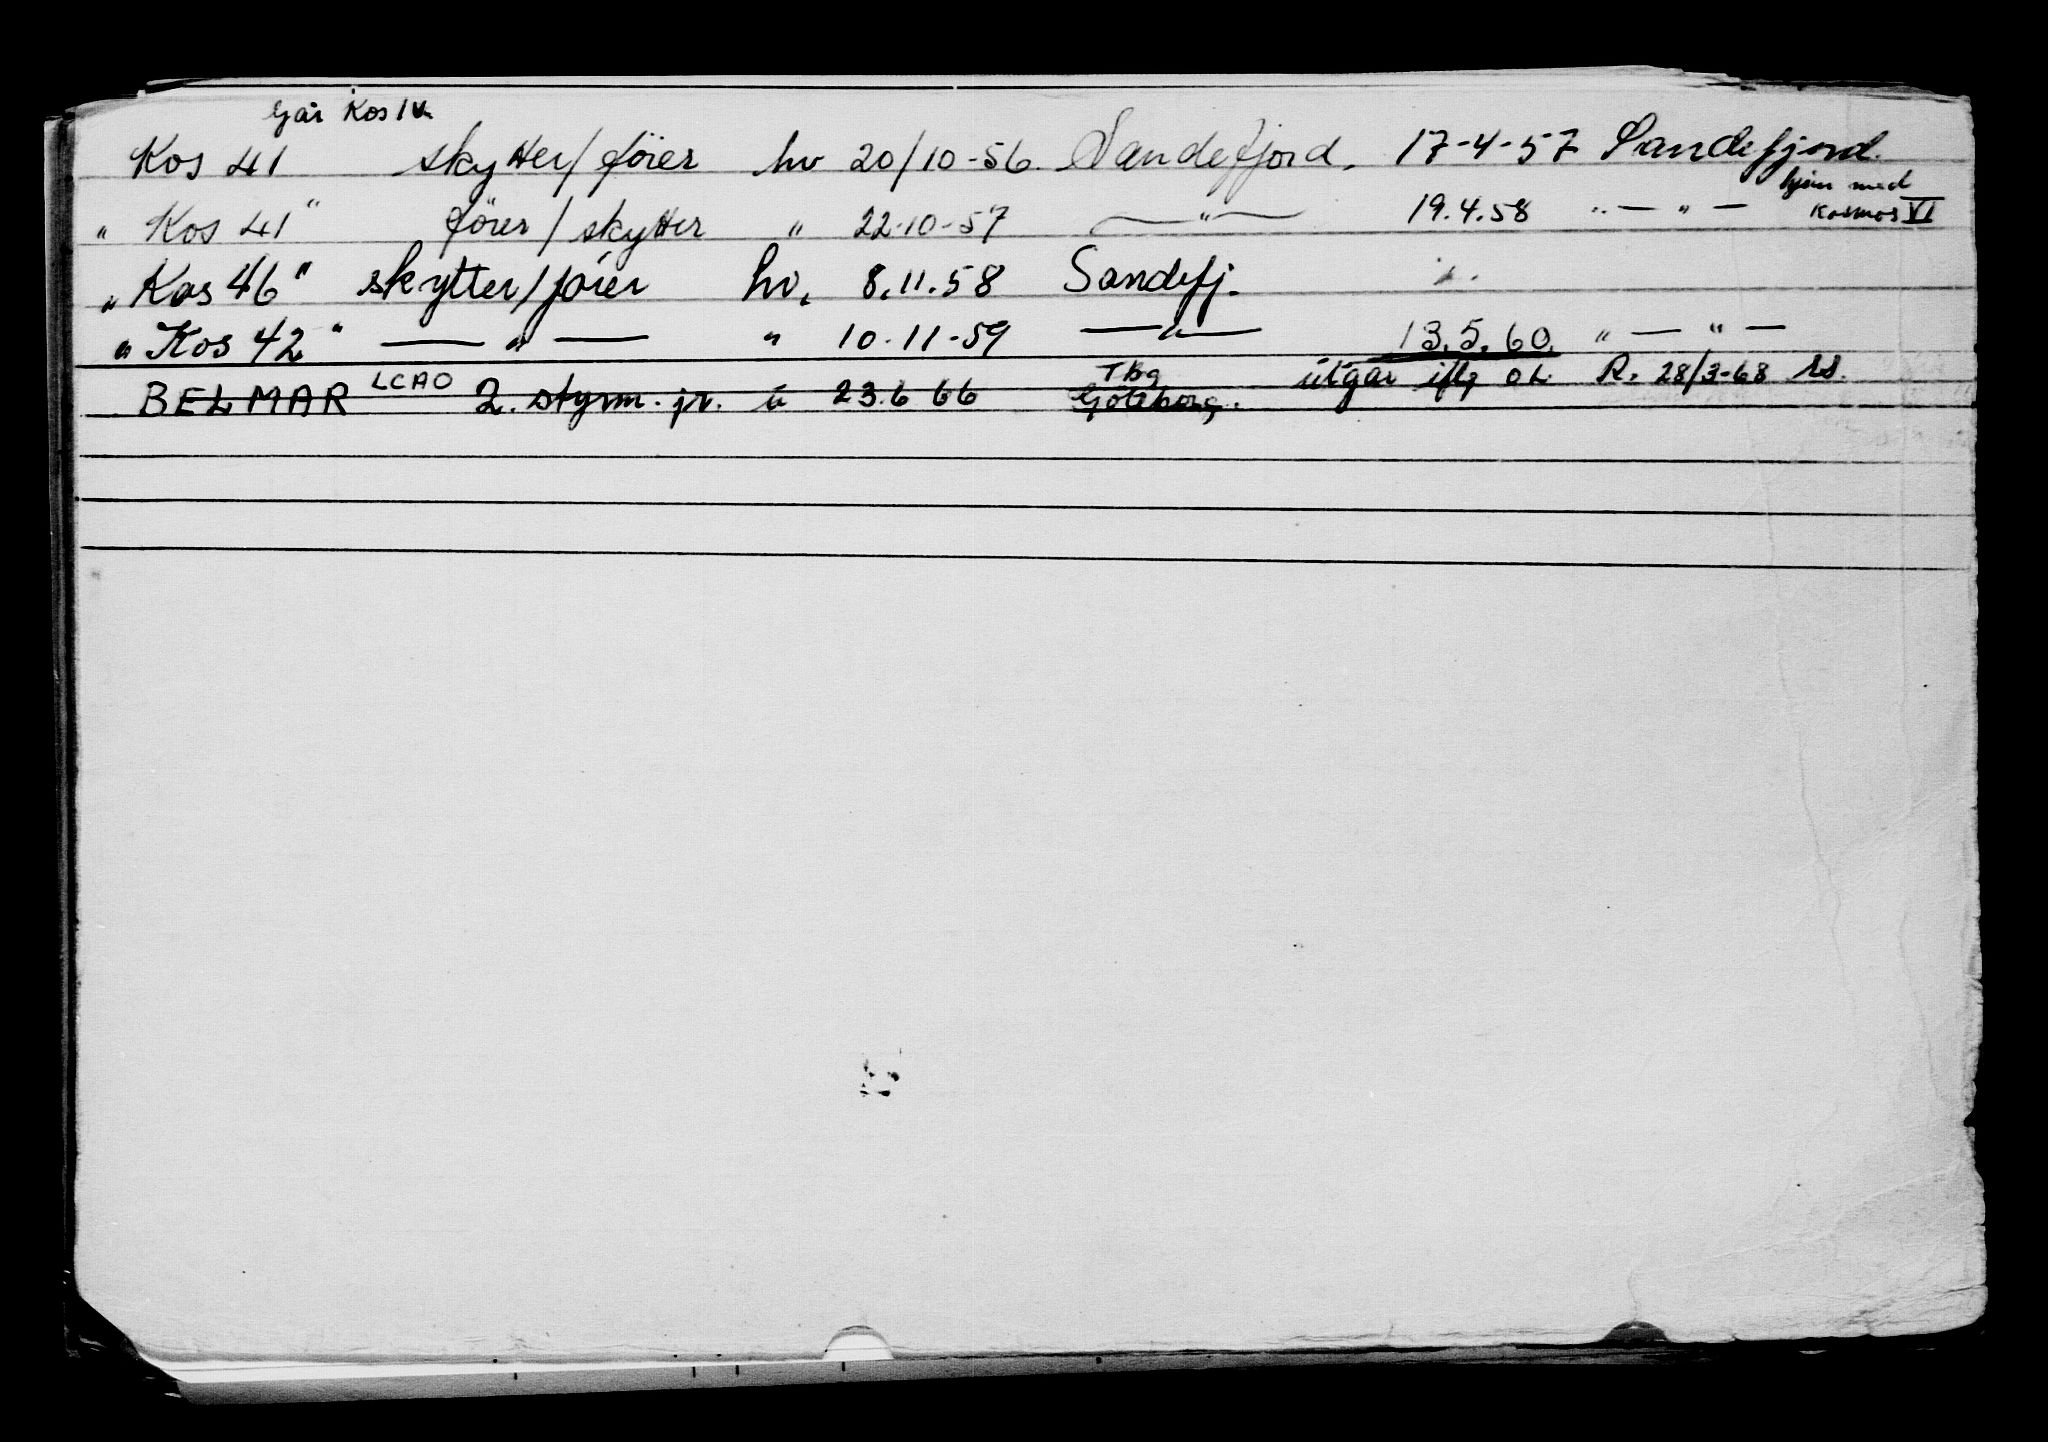 Går Kos IV.
Kos 41 skytter/förer hv 20/10-56. Sandefjord. 17-4-57 Sandefjord.
" Kos 41" förer/skytter " 22-10-57 —"— 19.4.58 " — " — hjem med Kosmos VI
" Kos 46" skytter/förer hv. 8.11.58 Sandefj.
" Kos 42" — " — " 10-11-59 —"— 13.5.60. " — " —
BELMAR LCAO 2. styrm. jr. u 23.6 66 Tbg Göteborg. utgår iflg OL R. 28/3-68